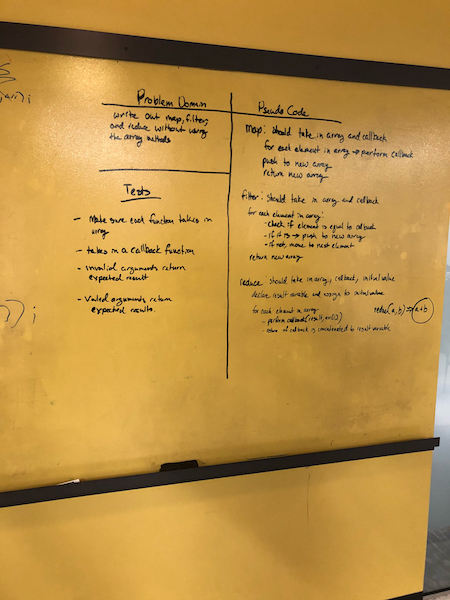 Problem Domain
write out map, filter,
and reduce without using
the array methods
Tests
- Make sure each function takes in
array
- takes in a callback function
- invalid arguments return
expected result
- Valid arguments return
expected results.
Pseudo Code
map: should take in array and callback
for each element in array → perform callback
push to new array
return new array
filter: should take in array and callback
for each element in array:
- check if element is equal to callback
- if it is → push to new array
- if not, move to next element
return new array
reduce should take in array, callback, initial value
declare result variable and assign to initial value
for each element in array
- perform callback(result, arr[i])
- return of callback is concatenated to result variable
(a, b) => a + b
) i